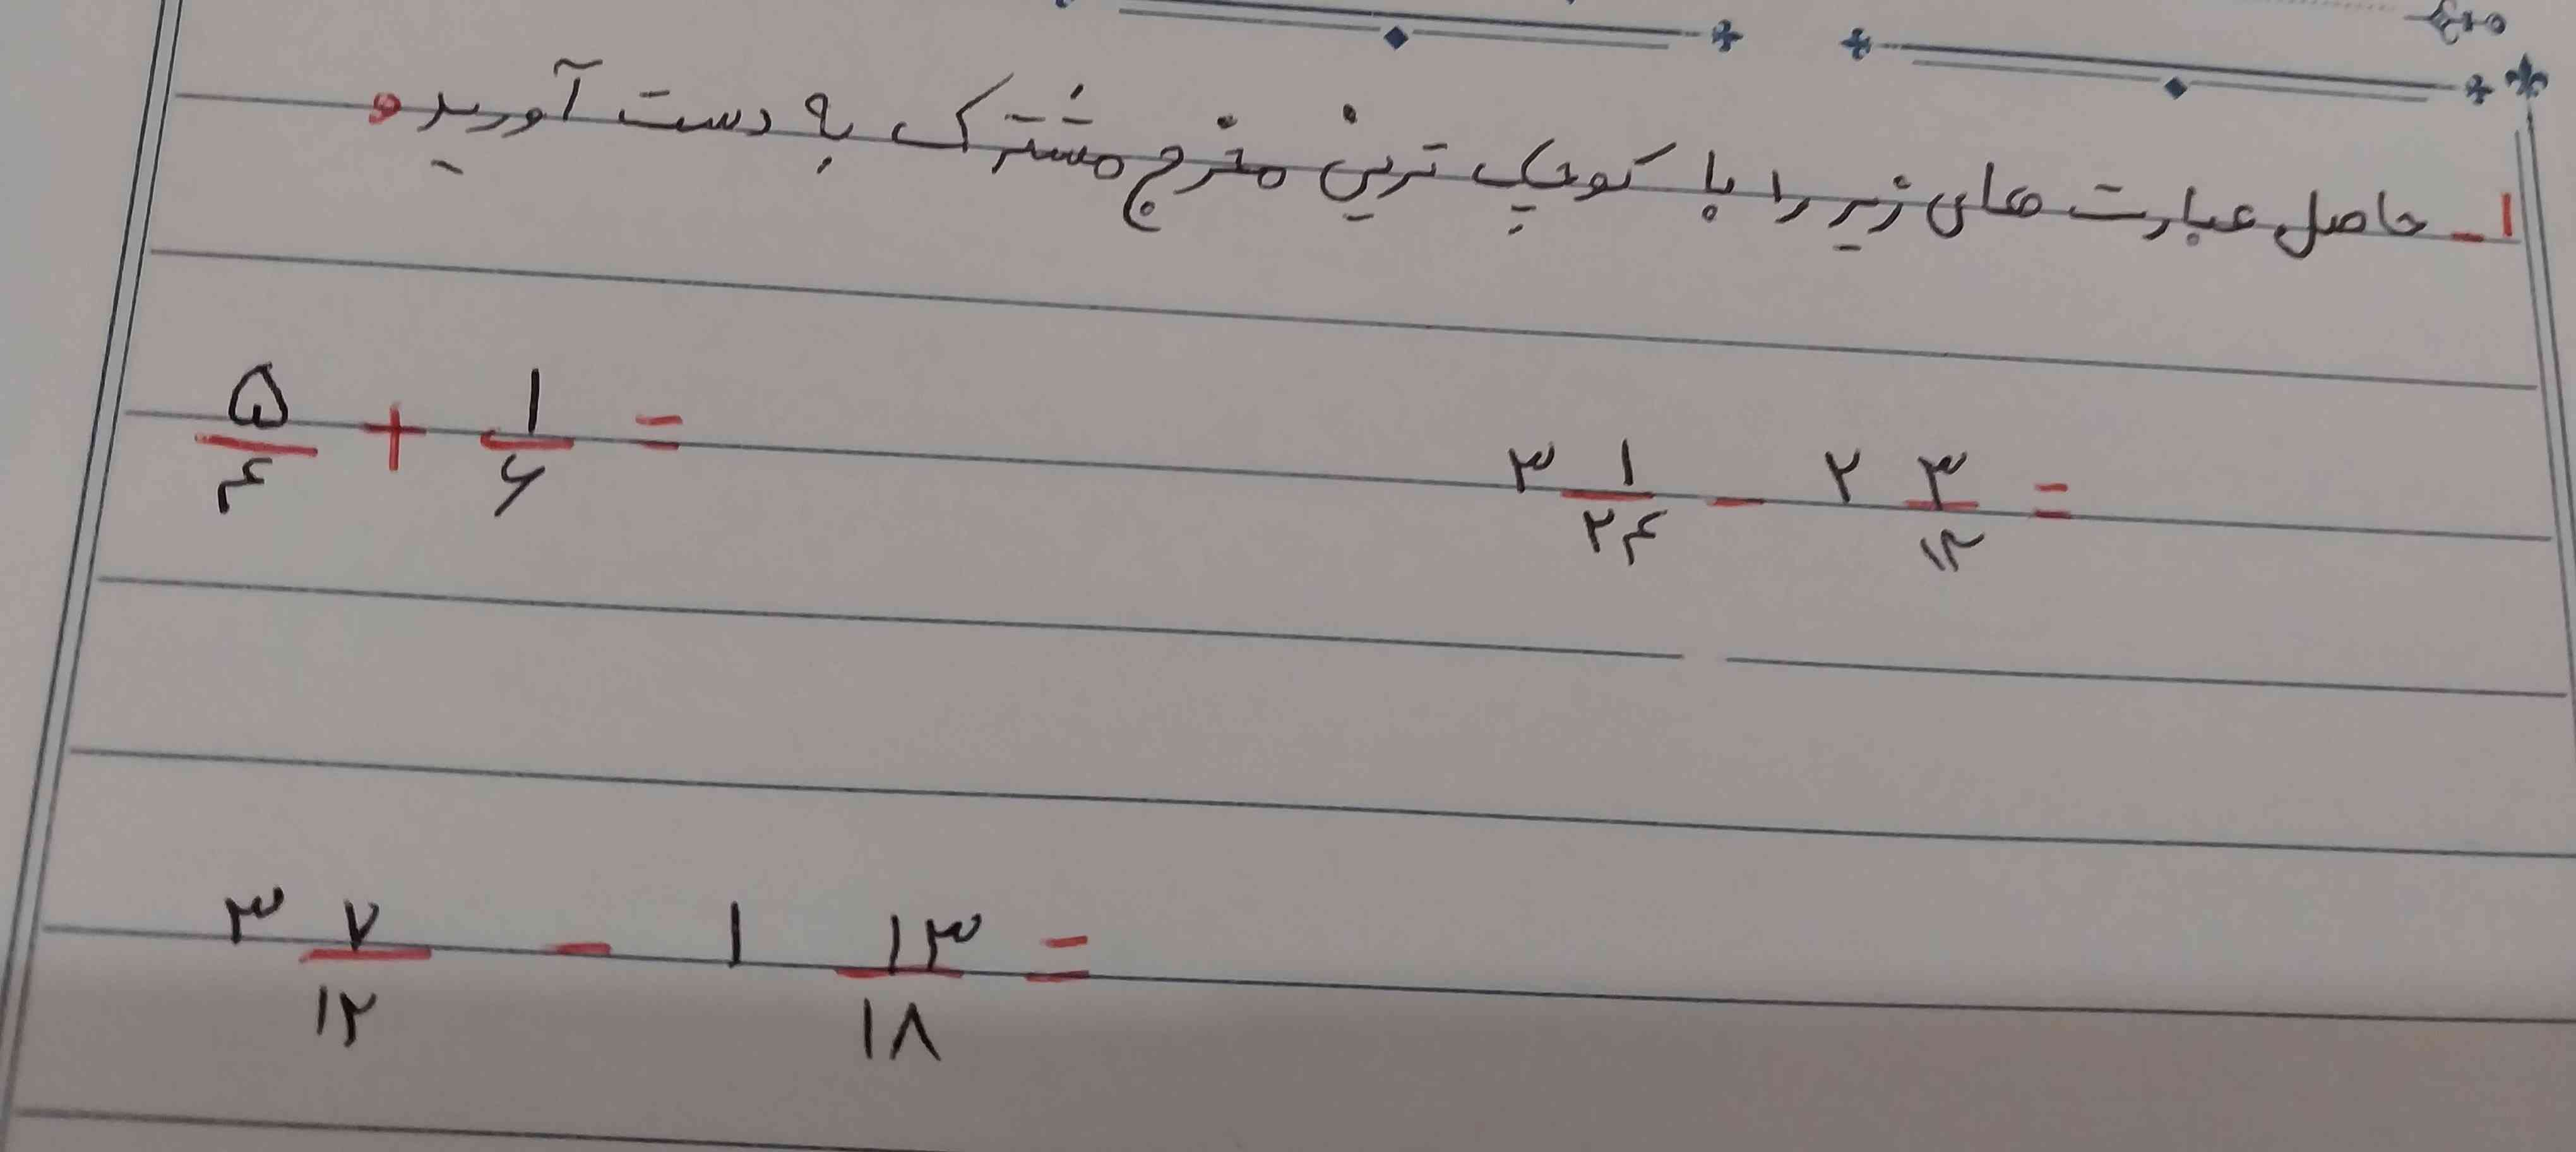 ۱_ حاصل عبارت های زیر را با کوچک ترین مخرج مشترک به دست آورید.
۵/۴ + ۱/۶ =
۳ ۱/۲۴ - ۲ ۳/۱۲ =
۳ ۷/۱۲ - ۱ ۱۳/۱۸ =